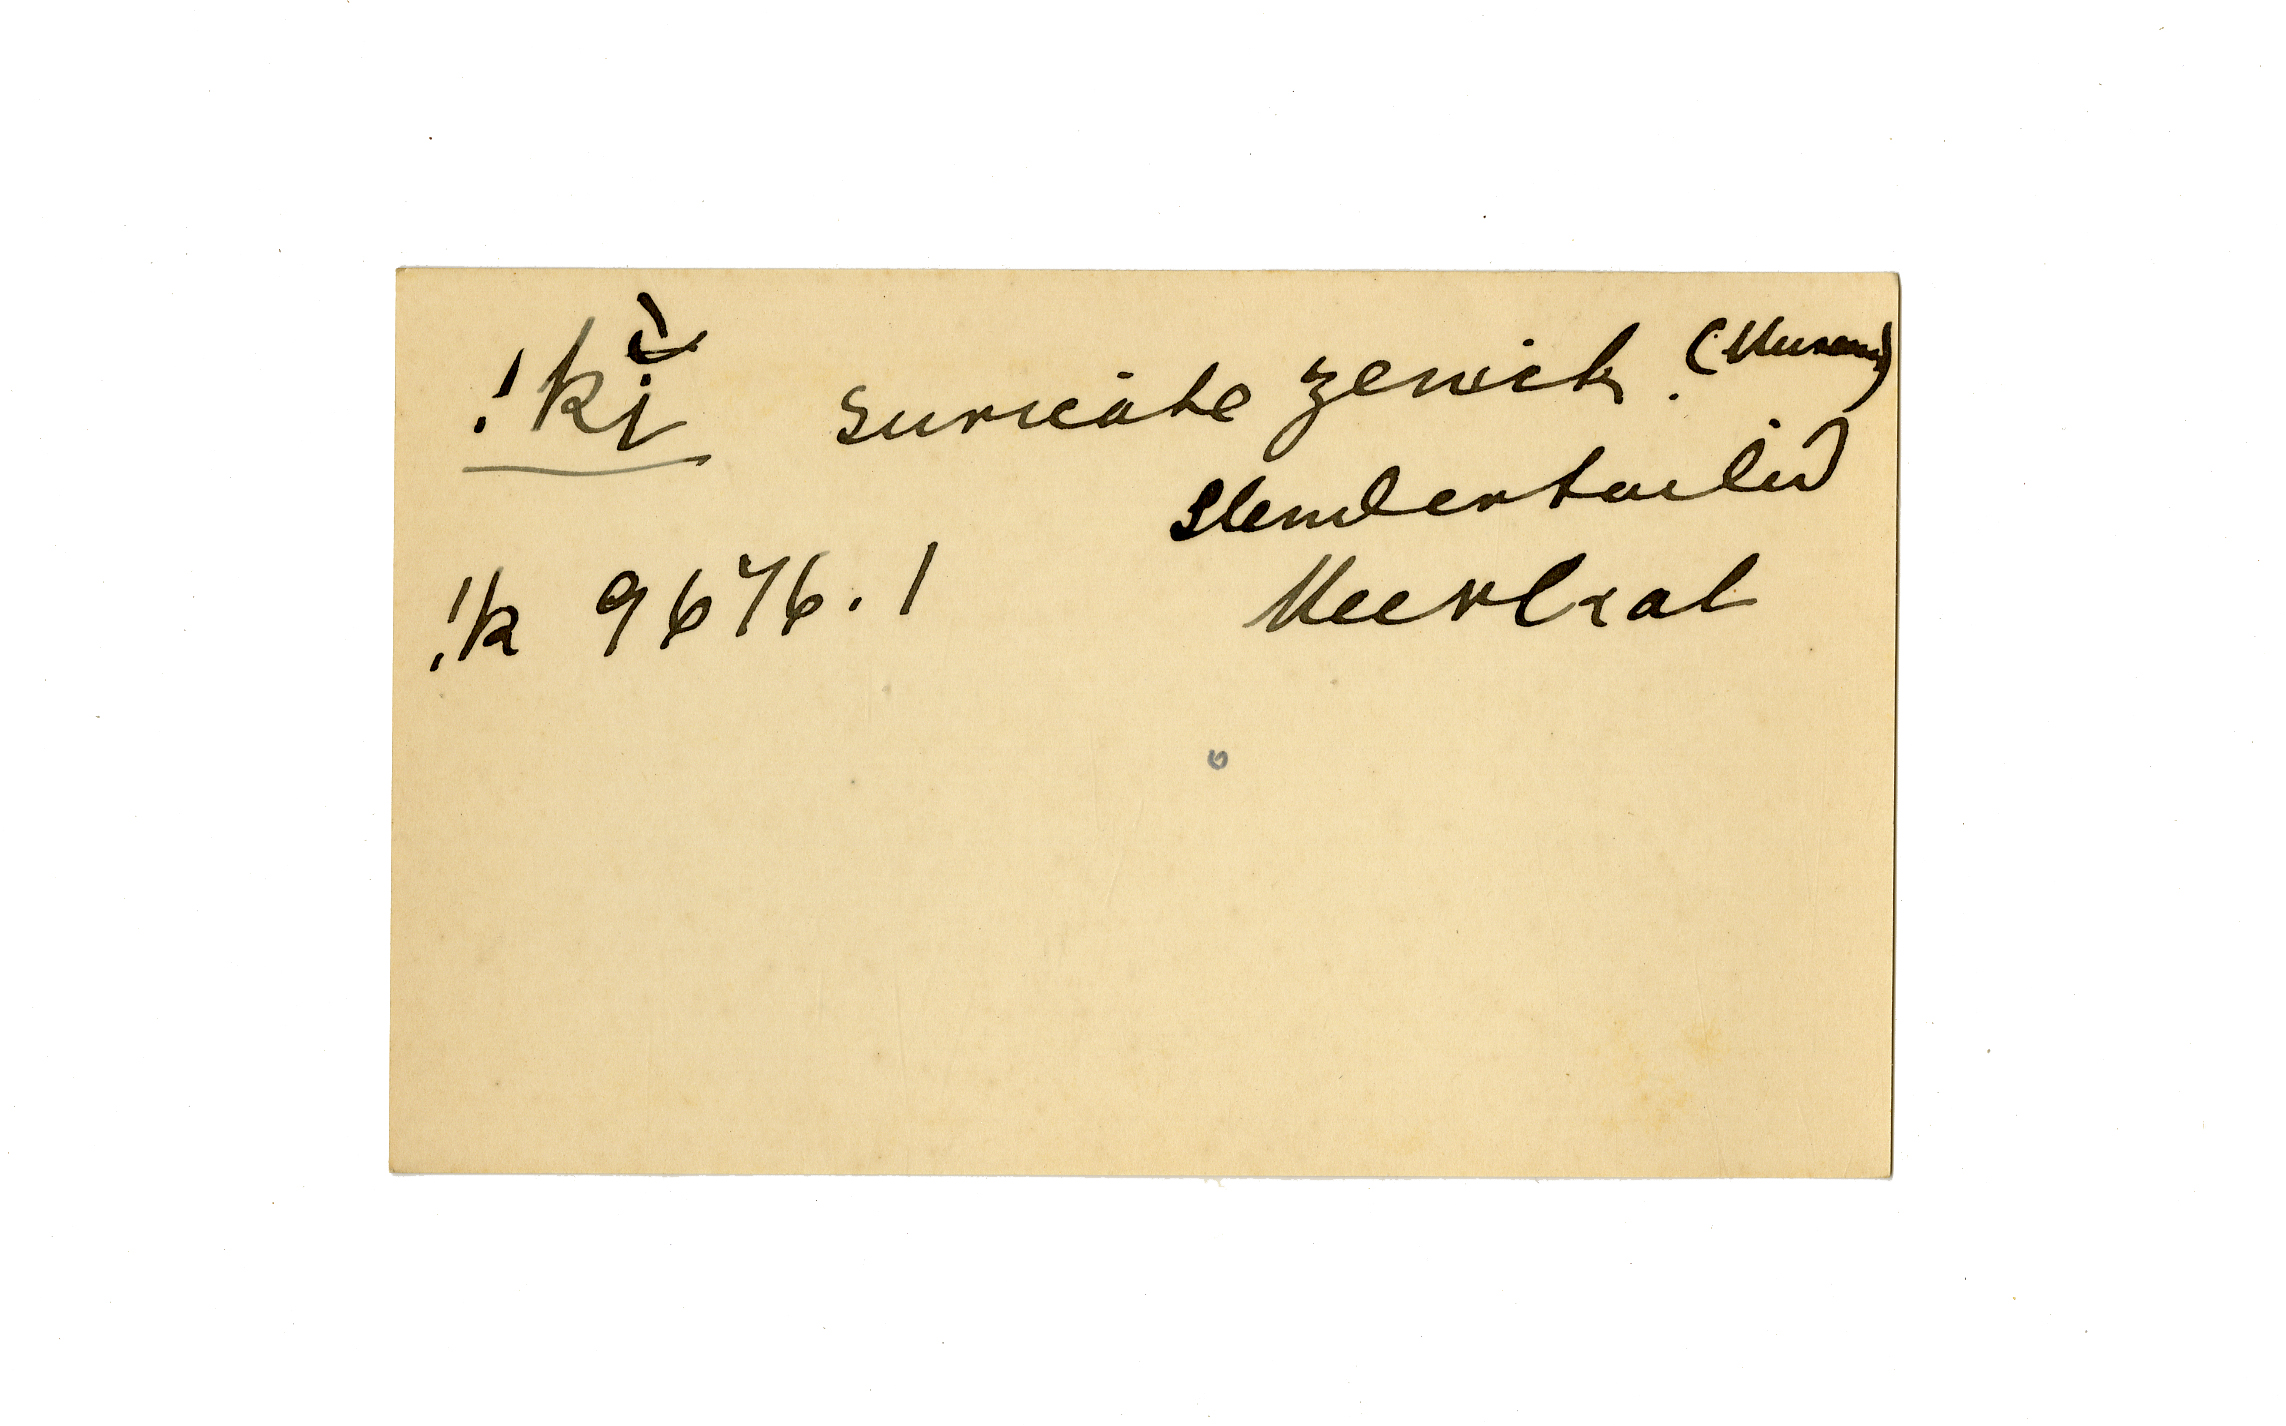 !kĭ̀ suricate zenick. (Museum)
Slendertailed
Meerkat
!k 9676.1